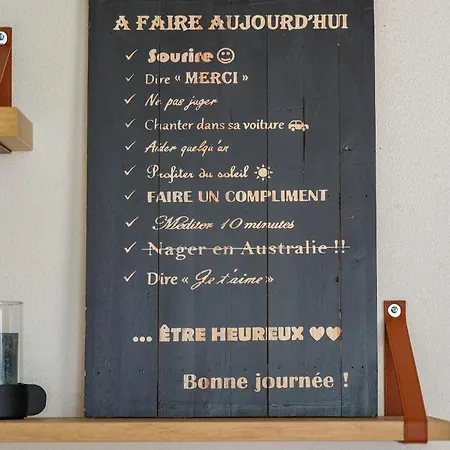 A FAIRE AUJOURD'HUI
✓ Sourire ☺
✓ Dire « MERCI »
✓ Ne pas juger
✓ Chanter dans sa voiture 🚗
✓ Aider quelqu'un
✓ Profiter du soleil ☀
✓ FAIRE UN COMPLIMENT
✓ Méditer 10 minutes
✓ Nager en Australie !!
✓ Dire « Je t'aime »
... ÊTRE HEUREUX ♥♥
Bonne journée !